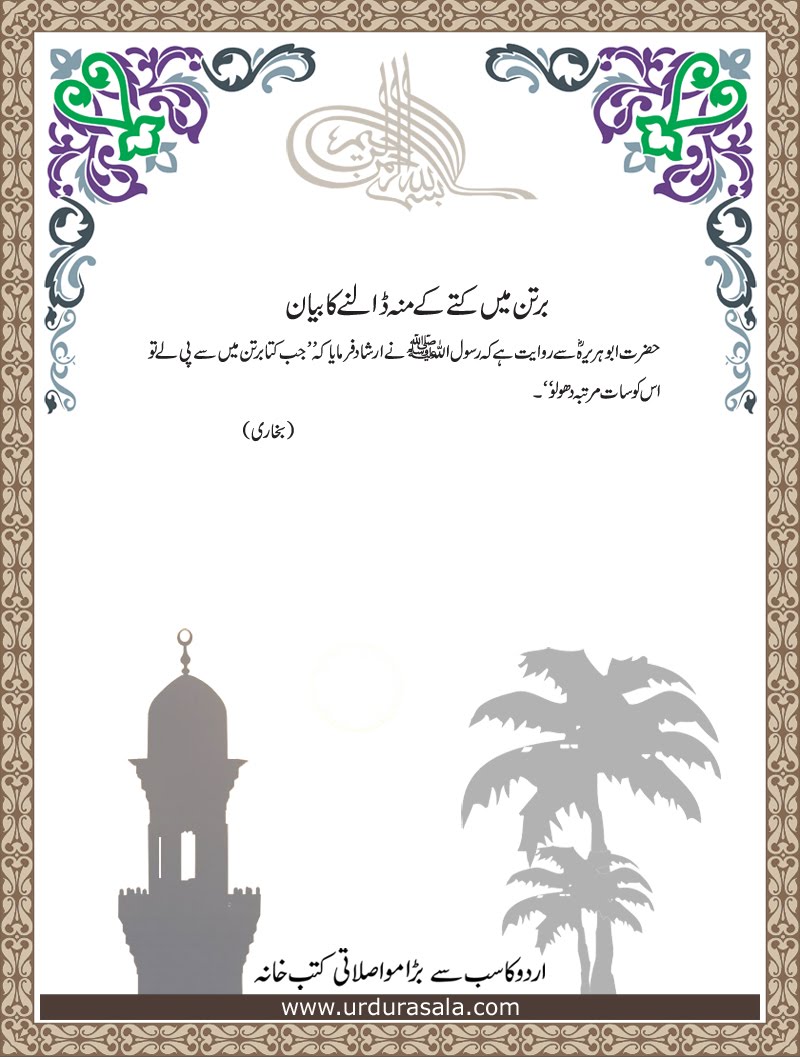 بسم الله الرحمن الرحيم
برتن میں کتے کے منہ ڈالنے کا بیان
حضرت ابو ہریرہؓ سے روایت ہے کہ رسول اللہ ﷺ نے ارشاد فرمایا کہ ’’جب کتا برتن میں سے پی لے تو
اس کو سات مرتبہ دھو لو‘‘۔
(بخاری)
اردو کا سب سے بڑا مواصلاتی کتب خانہ
www.urdurasala.com